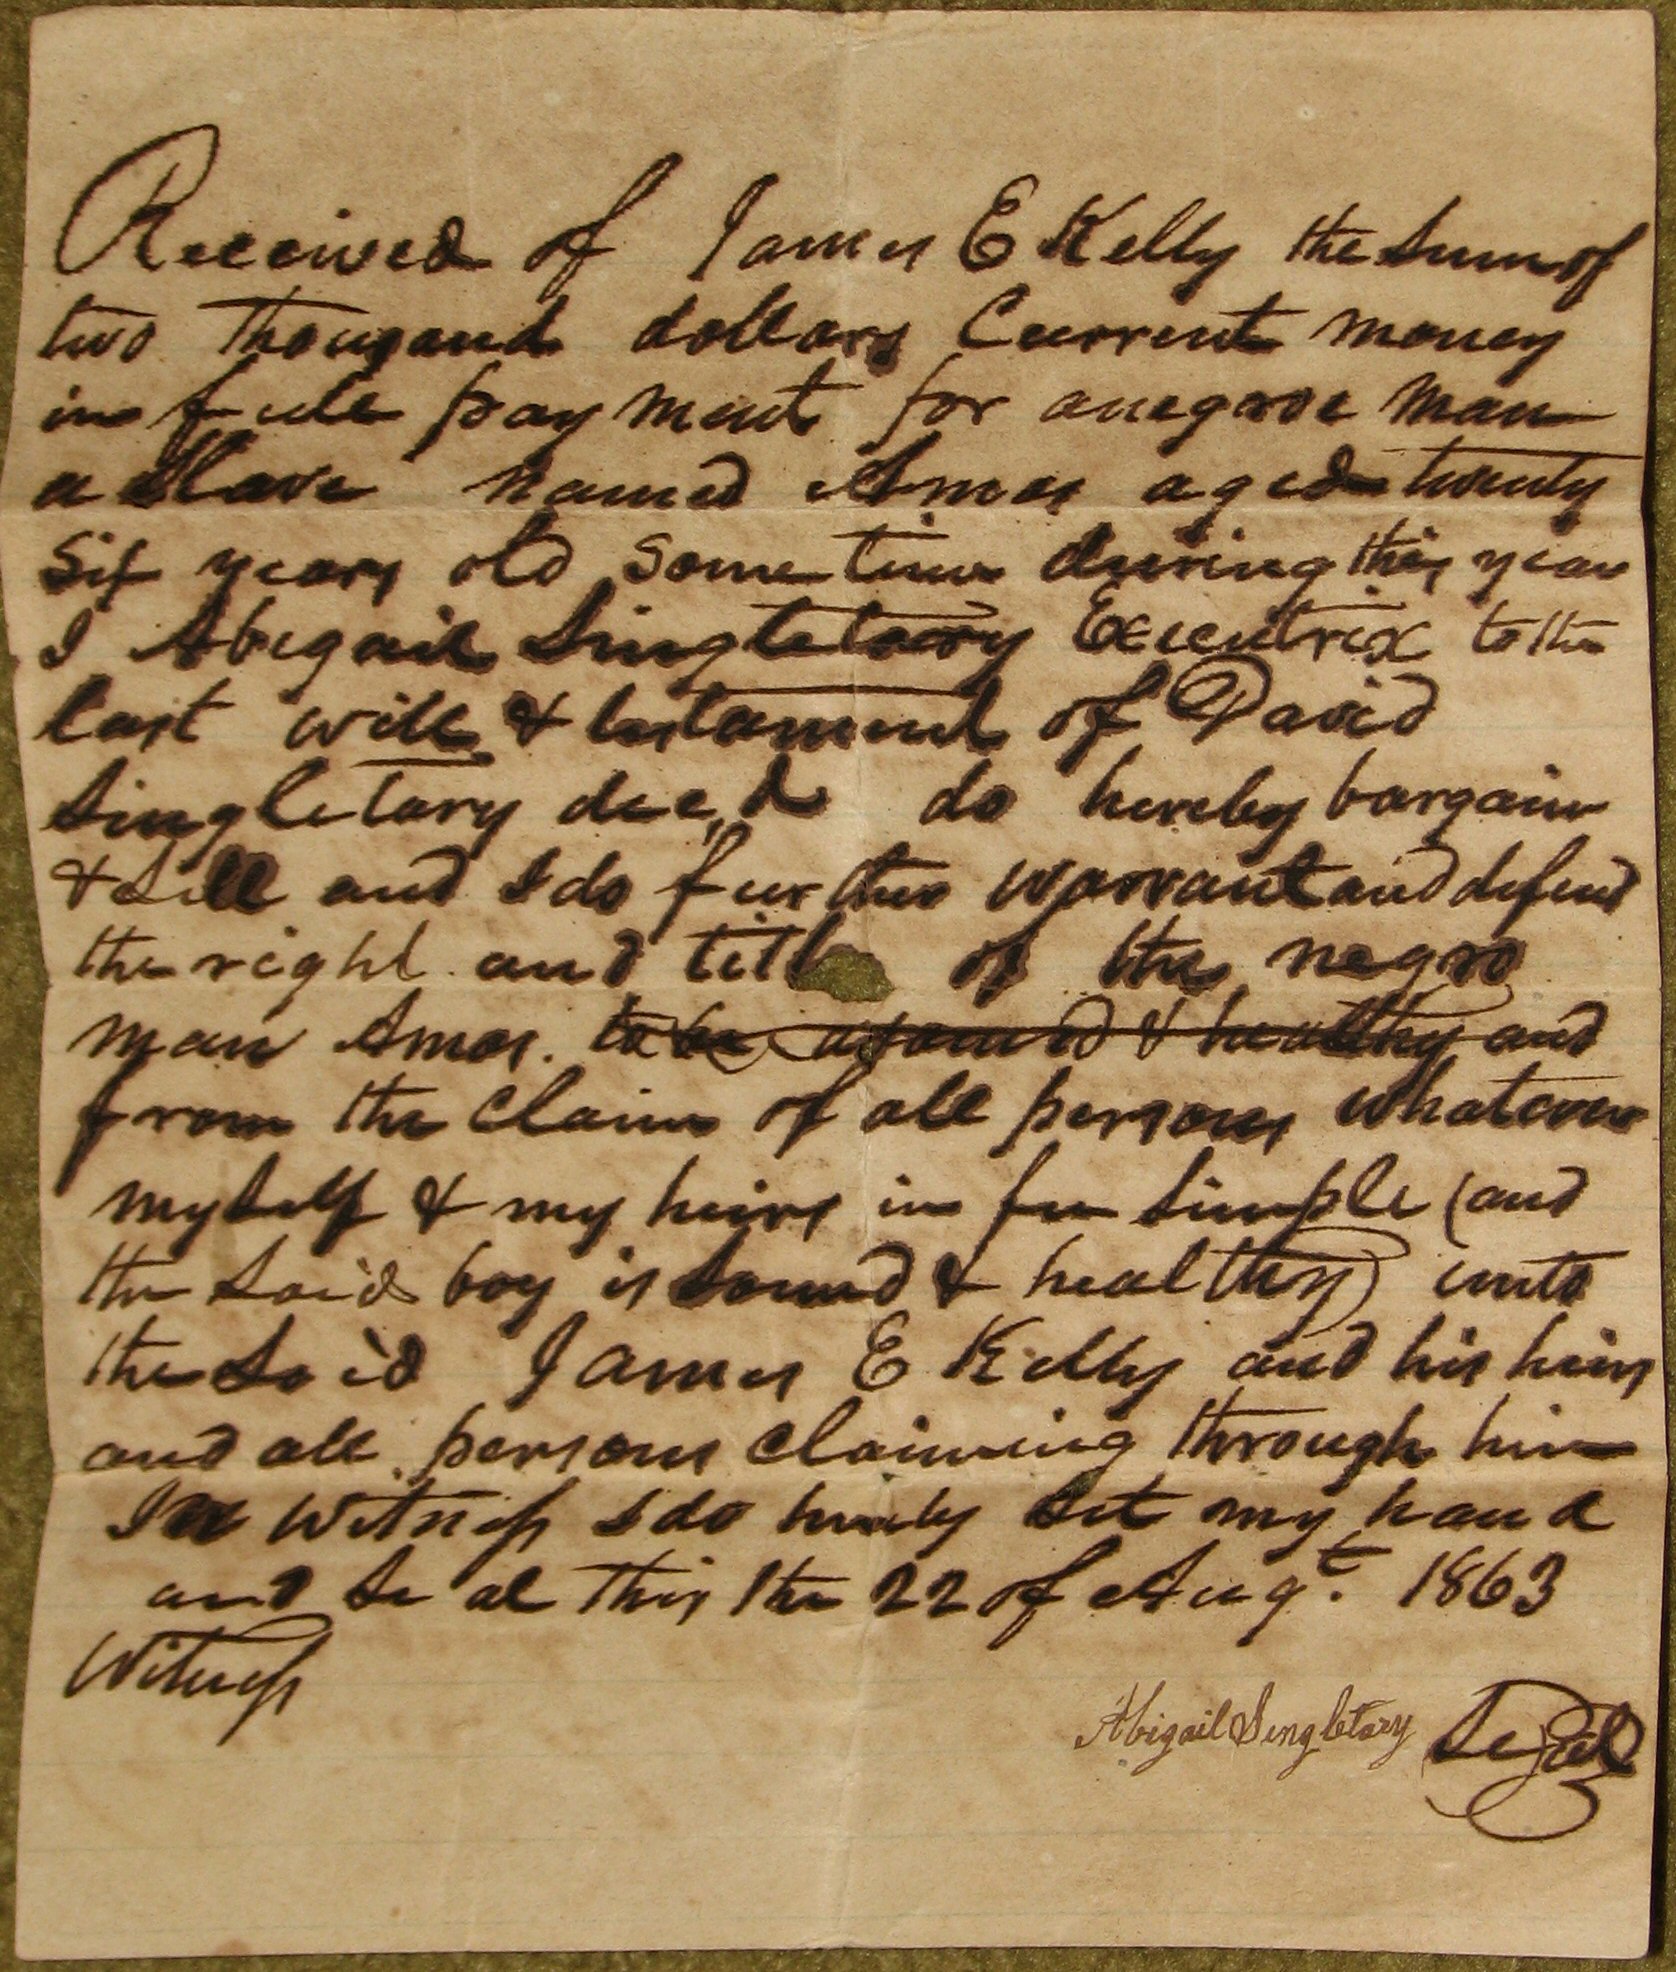 Received of James E Kelly the Sum of
two Thousand dollars Current money
in full payment for a negroe man
a Slave named Amos aged twenty
Six years old Some time during this year
I Abigail Singletary Executrix to the
last will & testament of David
Singletary dec,d do hereby bargain
& Sell and I do further warrant and defend
the right and titl of the negro
man Amos. to be a sound & healthy and
from the claim of all persons whatever
myself & my heirs in fee Simple (and
the Said boy is Sound & healthy) unto
the Said James E Kelly and his heirs
and all persons claiming through him
In witness I do hereby Set my hand
and Seal this the 22 of Augt. 1863
Witness
Abigail Singletary Seal